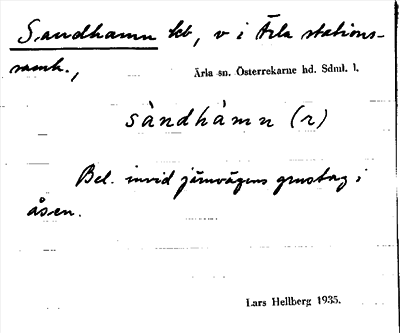 Sandhamn hb, v i Ärla stations-
samh.,
Ärla sn. Österrekarne hd. Sdml. l.
sàndhámn (r)
Bel. invid järnvägens grustag i
åsen.
Lars Hellberg 1935.